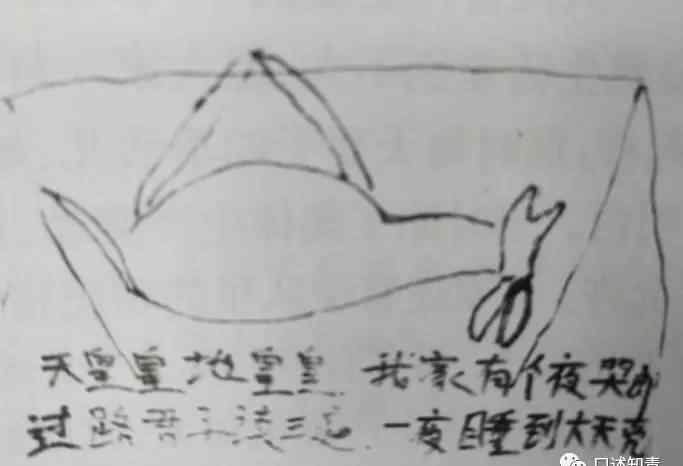 天皇皇 地皇皇 我家有个夜哭郎
过路君子读三遍.一夜睡到大天亮
口述知青